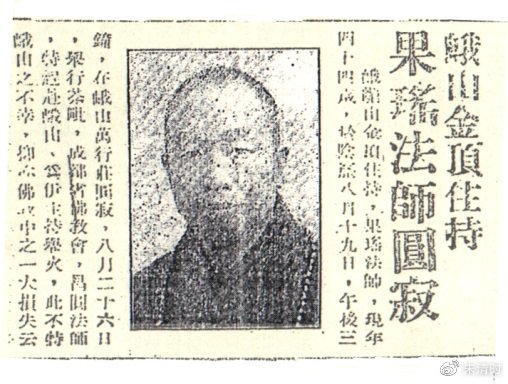 峨山金頂住持
果瑤法師圓寂
峨眉山金頂住持，果瑤法師，現年
四十四歲，於陰歷八月十九日，午後三
鐘，在峨山萬行莊圓寂，八月二十六日
，舉行荼毗，成都省佛教會，昌圓法師
，特起赴峨山、為伊主持舉火，此不特
峨山之不幸，抑亦佛教中之一大損失云